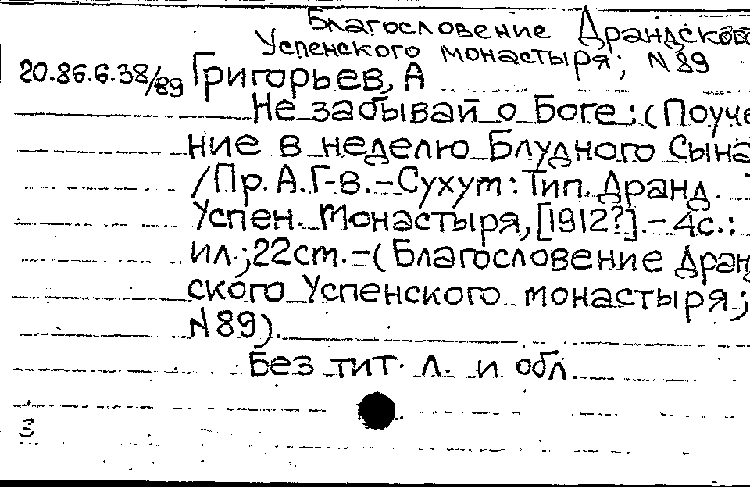 Благословение Драндского
Успенского монастыря; N 89
20.86.6.38/89 Григорьев, А
Не забывай о Боге: (Поуче
ние в неделю Блудного Сына
/Пр. А. Г-в. - Сухум: Тип. Дранд.
Успен. Монастыря, [1912?]. - 4с.:
ил.; 22 ст. - (Благословение Дранд
ского Успенского монастыря;
N 89).
Без тит. л. и обл.
3